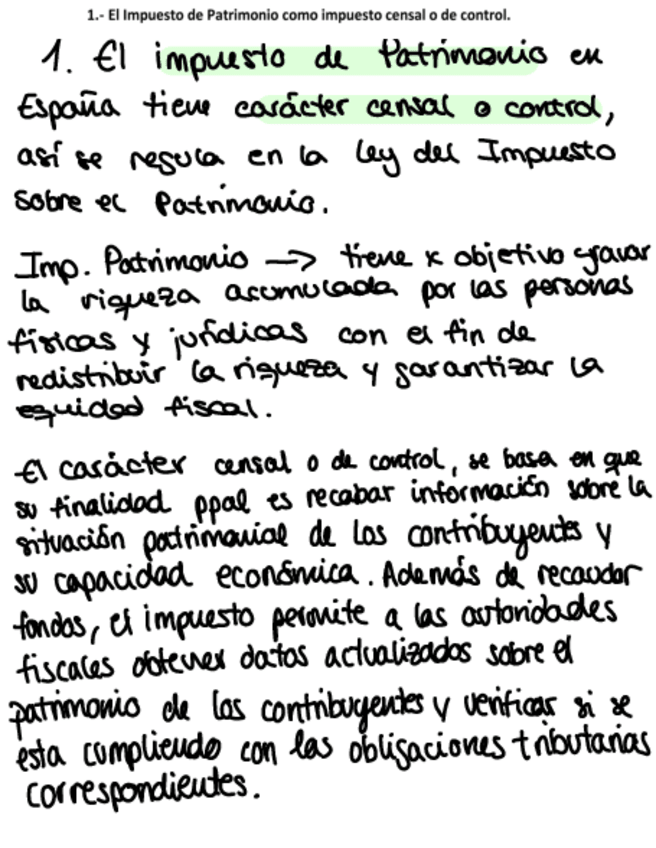 1.- El Impuesto de Patrimonio como impuesto censal o de control.
1. El impuesto de Patrimonio en
España tiene carácter censal o control,
así se regula en la Ley del Impuesto
sobre el Patrimonio.
Imp. Patrimonio —> tiene x objetivo gravar
la riqueza acumulada por las personas
físicas y jurídicas con el fin de
redistribuir la riqueza y garantizar la
equidad fiscal.
El carácter censal o de control, se basa en que
su finalidad ppal es recabar información sobre la
situación patrimonial de los contribuyentes y
su capacidad económica. Además de recaudar
fondos, el impuesto permite a las autoridades
fiscales obtener datos actualizados sobre el
patrimonio de los contribuyentes y verificar si se
esta cumpliendo con las obligaciones tributarias
correspondientes.